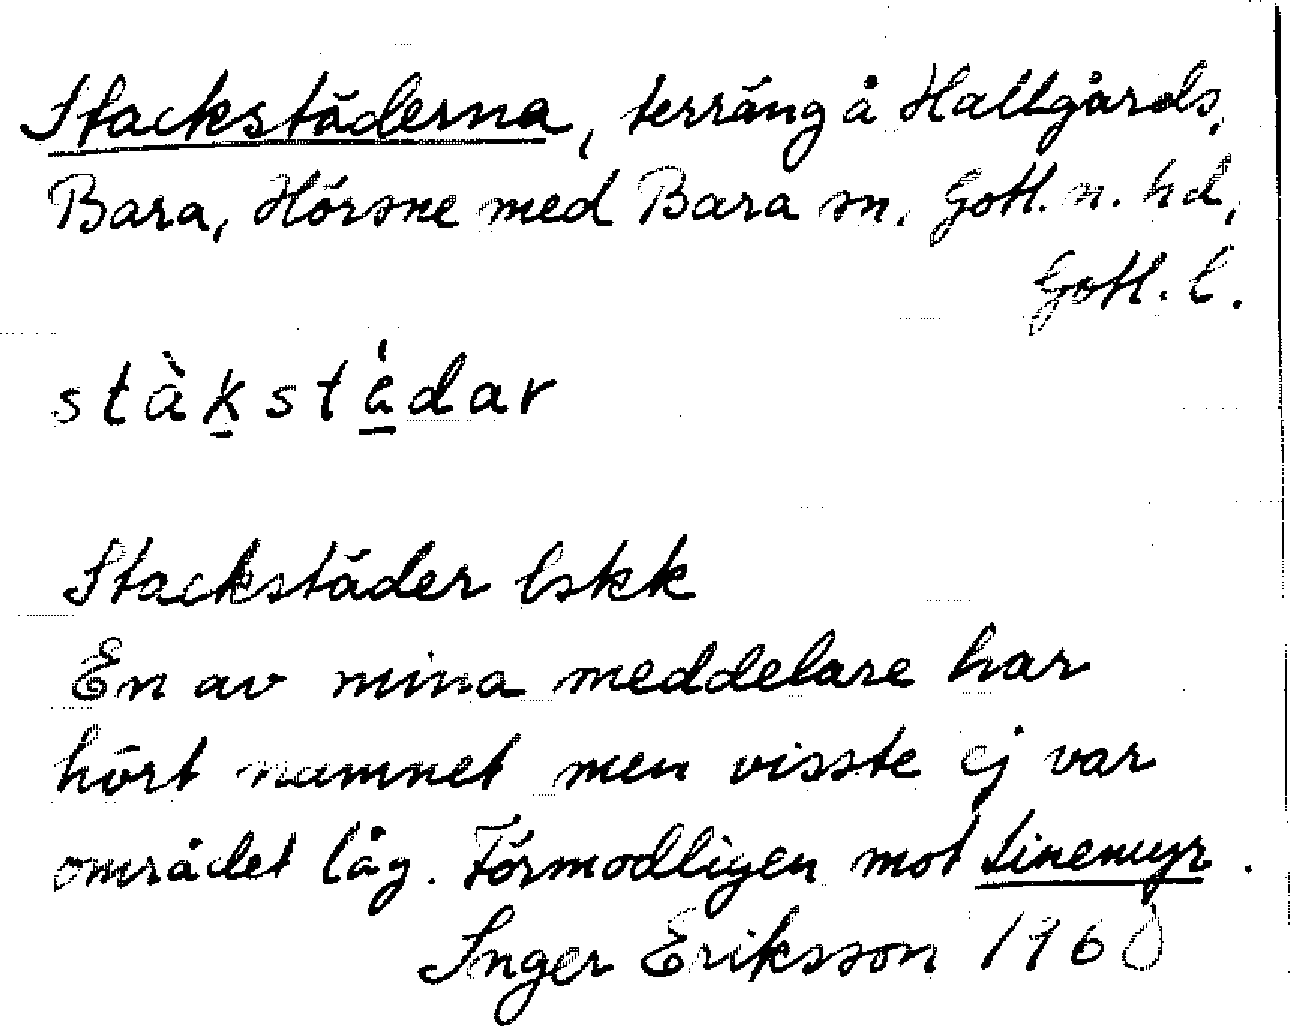 Stackstäderna, terräng å Hallgårds,
Bara, Hörsne med Bara sn, Gotl. n. hd,
Gotl. l.
stàkstádar
Stackstäder lskk
En av mina meddelare har
hört namnet men visste ej var
området låg. Förmodligen mot Linemyr.
Inger Eriksson 1960